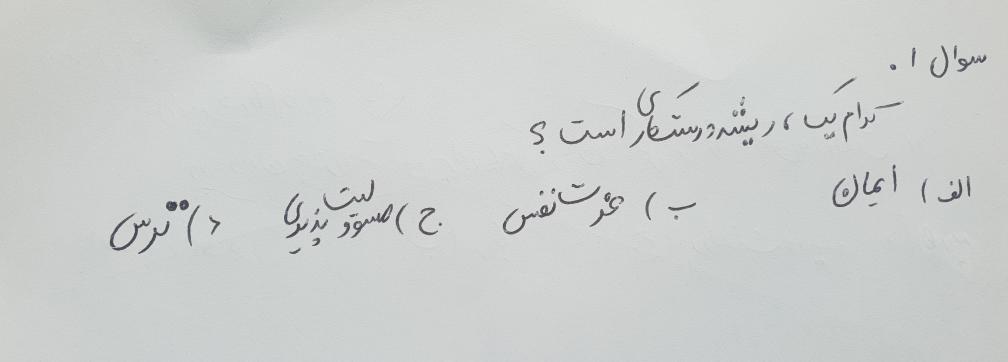 سوال ۱.
کدام یک، ریشه درستکاری است؟
الف) ایمان ب) عزت نفس ج) مسئولیت پذیری د) ترس